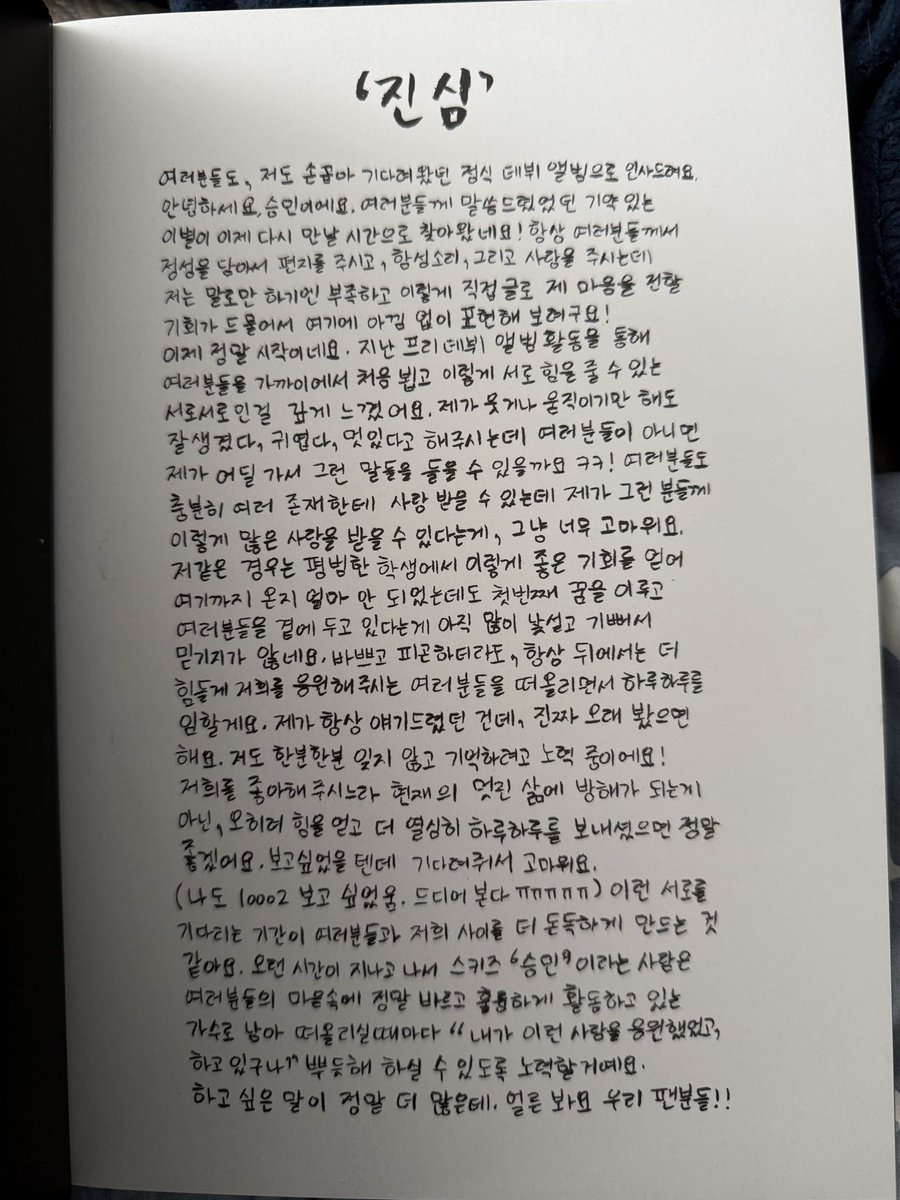 '진심'
여러분들도, 저도 손꼽아 기다려왔던 정식 데뷔 앨범으로 인사드려요.
안녕하세요, 승민이에요. 여러분들께 말씀드렸었던 기약 있는
이별이 이제 다시 만날 시간으로 찾아왔네요! 항상 여러분들께서
정성을 담아서 편지를 주시고, 함성소리, 그리고 사랑을 주시는데
저는 말로만 하기엔 부족하고 이렇게 직접 글로 제 마음을 전할
기회가 드물어서 여기에 아낌 없이 표현해 보려구요!
이제 정말 시작이네요. 지난 프리데뷔 앨범 활동을 통해
여러분들을 가까이에서 처음 뵙고 이렇게 서로 힘을 줄 수 있는
서로서로인걸 깊게 느꼈어요. 제가 웃거나 움직이기만 해도
잘생겼다, 귀엽다, 멋있다고 해주시는데 여러분들이 아니면
제가 어딜 가서 그런 말들을 들을 수 있을까요 ㅋㅋ! 여러분들도
충분히 여러 존재한테 사랑 받을 수 있는데 제가 그런 분들께
이렇게 많은 사랑을 받을 수 있다는게, 그냥 너무 고마워요.
저같은 경우는 평범한 학생에서 이렇게 좋은 기회를 얻어
여기까지 온지 얼마 안 되었는데도 첫번째 꿈을 이루고
여러분들을 곁에 두고 있다는게 아직 많이 낯설고 기뻐서
믿기지가 않네요. 바쁘고 피곤하더라도, 항상 뒤에서는 더
힘들게 저희를 응원해주시는 여러분들을 떠올리면서 하루하루를
임할게요. 제가 항상 얘기드렸던 건데, 진짜 오래 봤으면
해요. 저도 한분한분 잊지 않고 기억하려고 노력 중이에요!
저희를 좋아해 주시느라 현재의 멋진 삶에 방해가 되는게
아닌, 오히려 힘을 얻고 더 열심히 하루하루를 보내셨으면 정말
좋겠어요. 보고싶었을 텐데 기다려줘서 고마워요.
(나도 10002 보고 싶었움. 드디어 본다 ㅠㅠㅠㅠㅠ) 이런 서로를
기다리는 기간이 여러분들과 저희 사이를 더 돈독하게 만드는 것
같아요. 오랜 시간이 지나고 나서 스키즈 '승민'이라는 사람은
여러분들의 마음속에 정말 바르고 훌륭하게 활동하고 있는
가수로 남아 떠올리실때마다 "내가 이런 사람을 응원했었고,
하고 있구나" 뿌듯해 하실 수 있도록 노력할거예요.
하고 싶은 말이 정말 더 많은데. 얼른 봐요 우리 팬분들!!